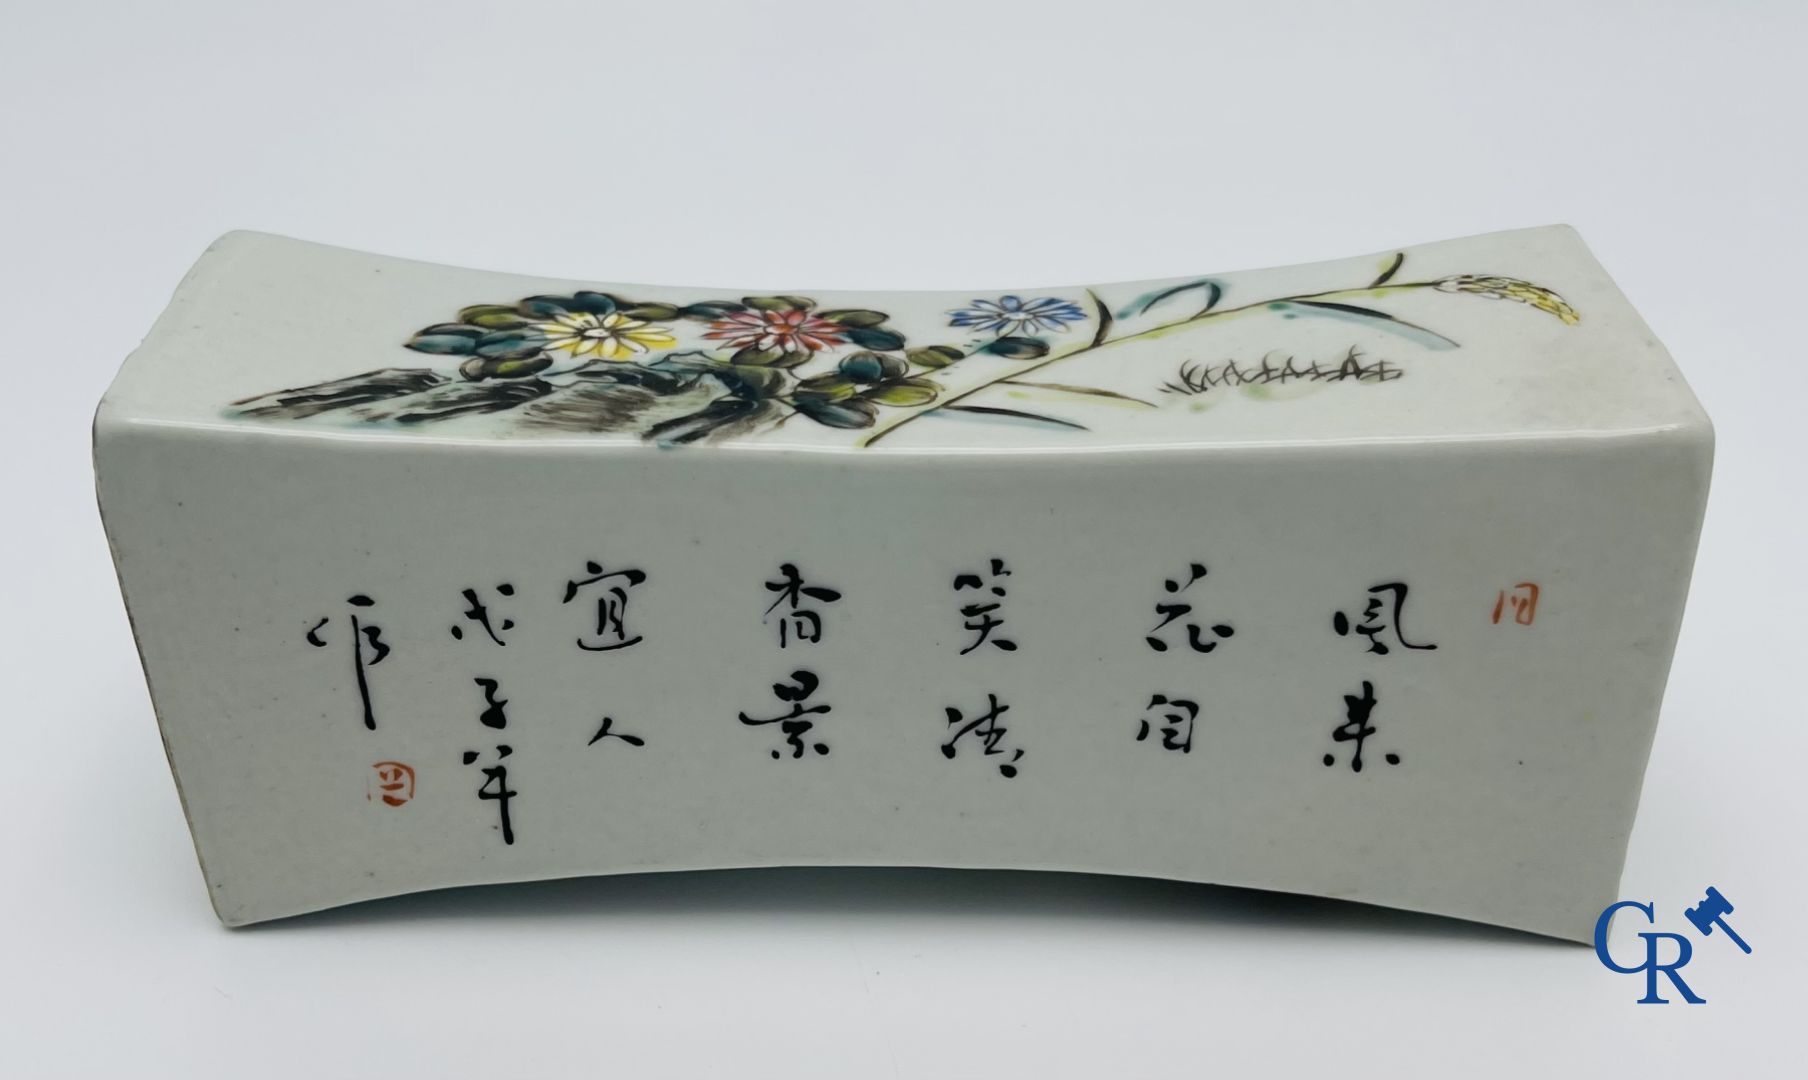 風来
花自
笑清
香景
宜人
戊子年
作
CR